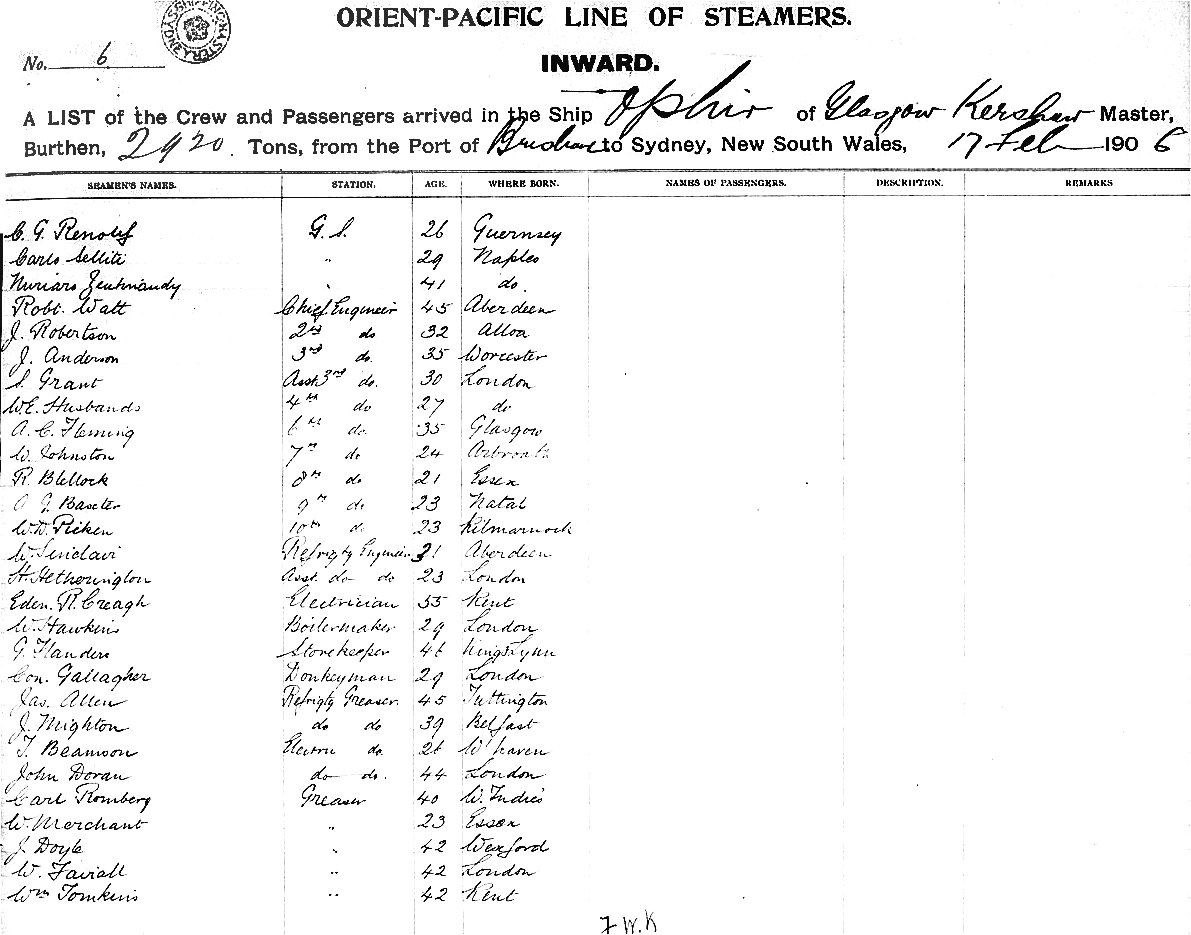 ORIENT-PACIFIC LINE OF STEAMERS.
No. 6
INWARD.
A LIST of the Crew and Passengers arrived in the Ship Ophir of Glasgow Kershaw Master,
Burthen, 2920 Tons, from the Port of Brisbane to Sydney, New South Wales, 17 Feb 1906
SEAMEN'S NAMES. STATION. AGE. WHERE BORN. NAMES OF PASSENGERS. DESCRIPTION. REMARKS
C. G. Renouf G. S. 26 Guernsey
Carlo Selliti " 29 Naples
41 do.
Robt. Watt Chief Engineer 45 Aberdeen
J. Robertson 2nd do 32 Alloa
J. Anderson 3rd do. 35 Worcester
S. Grant Asst. 3rd do. 30 London
W. E. Husbands 4th do 27 do
A. C. Fleming 6th do. 35 Glasgow
W. Johnston 7th do 24 Arbroath
R. Blellock 8th do 21 Essex
A G Baxter 9th do 23 Natal
W. D. Picken 10th do 23 Kilmarnock
W. Sinclair Refrigtg Engineer 31 Aberdeen
H. Hetherington Asst. do do 23 London
Eden. R. Creagh Electrician 55 Kent
W. Hawkins Boilermaker 29 London
G. Flanders Storekeeper 46 Kings Lynn
Con. Gallagher Donkeyman 29 London
Jas. Allen Refrigtg Greaser 45 Tuttington
J. Mighton do do 39 Belfast
T. Beamson Electric do. 26 W'haven
John Doran do do. 44 London
Carl Romberg Greaser 40 W. Indies
W. Merchant " 23 Essex
J. Doyle " 42 Wexford
W. Faviall " 42 London
Wm Tomkins " 42 Kent
F W. K